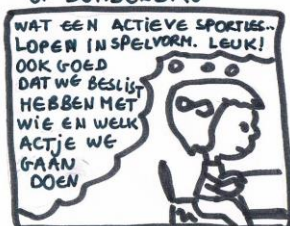 WAT EEN ACTIEVE SPORTLES..
LOPEN IN SPELVORM. LEUK!
OOK GOED
DAT WE BESLIST
HEBBEN MET
WIE EN WELK
ACTJE WE
GAAN
DOEN